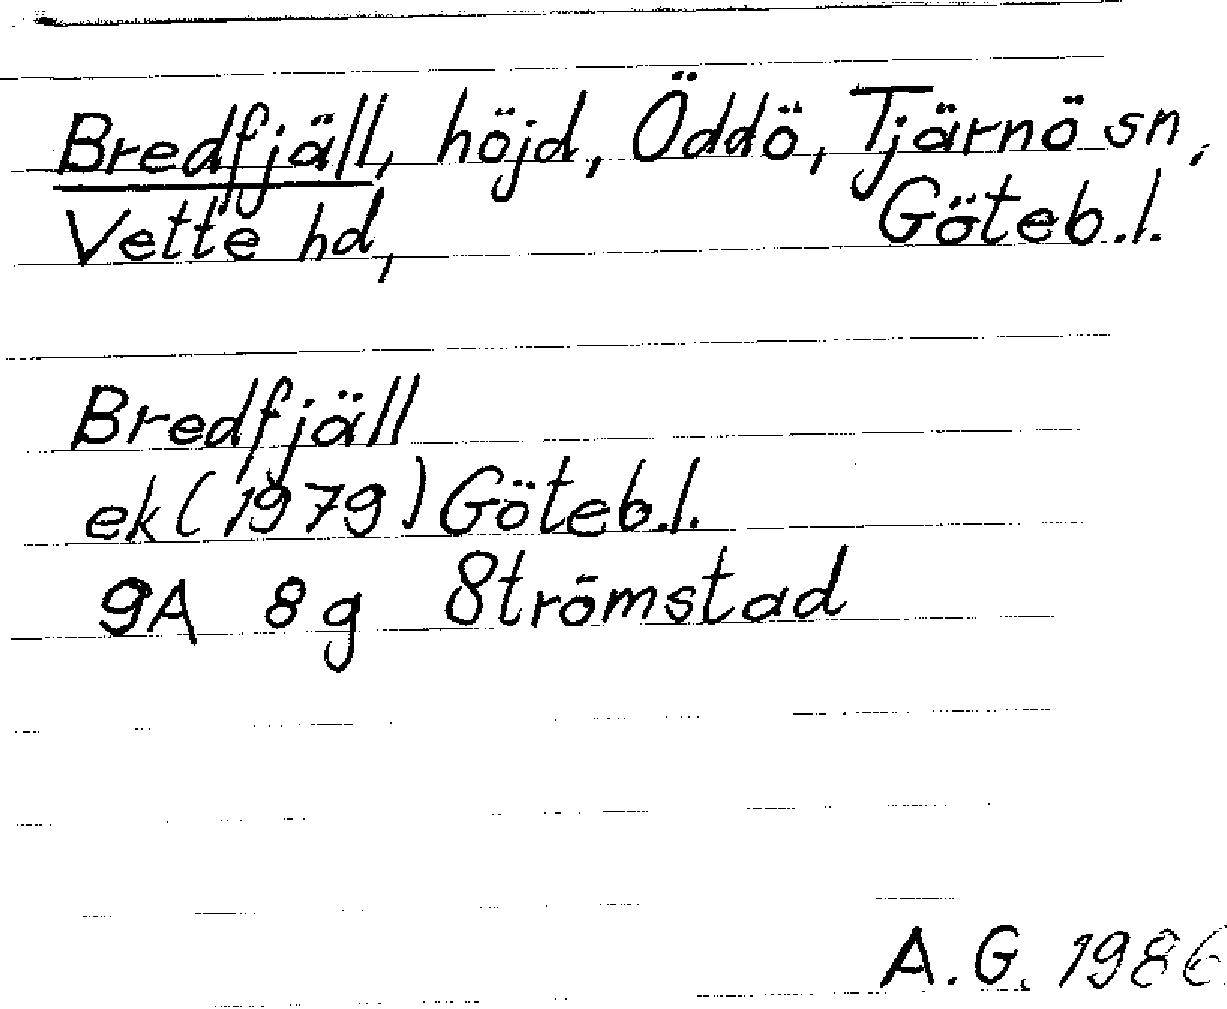 Bredfjäll, höjd, Öddö, Tjärnö sn,
Vette hd, Göteb.l.
Bredfjäll
ek (1979) Göteb.l.
9A 8g Strömstad
A.G. 1986